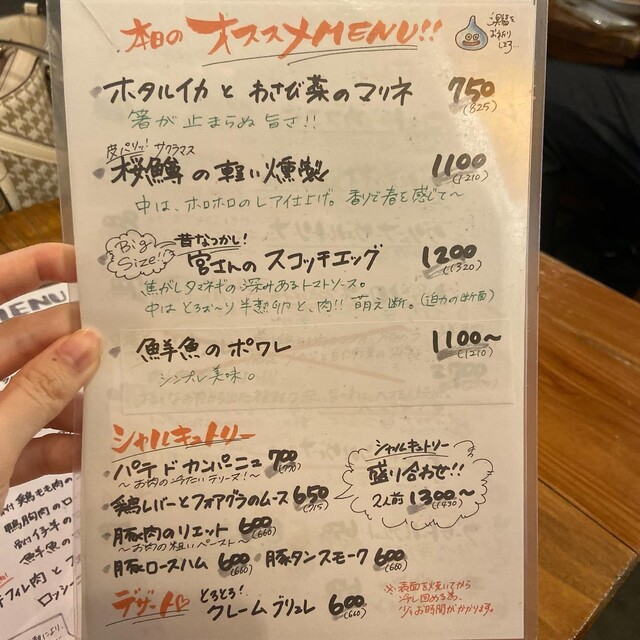 本日の オススメMENU!!
ホタルイカ と わさび菜のマリネ 750
(825)
箸が止まらぬ旨さ!!
皮パリッ! サクラマス
桜鱒の軽い燻製 1100
(1210)
中は、ホロホロのレア仕上げ。香りで春を感じて〜
Big Size!!
昔なつかし!
宮さんの スコッチエッグ 1200
(1320)
焦がしタマネギの深みあるトマトソース。
中は とろぉ〜り 半熟卵と、肉!! 萌え断。(迫力の断面)
鮮魚のポワレ 1100〜
(1210)
シンプル美味。
シャルキュトリー
パテ ド カンパーニュ 700
(770)
〜お肉の冷たいテリーヌ!〜
鶏レバーとフォアグラのムース 650
(715)
豚肉のリエット 600
(660)
〜お肉の粗いペースト〜
豚ロースハム 600 (660)
・豚タンスモーク 600 (660)
シャルキュトリー
盛り合わせ!!
2人前 1300〜
(1430)
デザート
とろとろ!
クレームブリュレ 600
(660)
※表面を焼いてから
冷し固める為、
少々お時間がかかります。
MENU
鶏モモ肉の
鴨胸肉のロ
仔牛の
鮮魚の
フィレ肉と フ
ロッシー